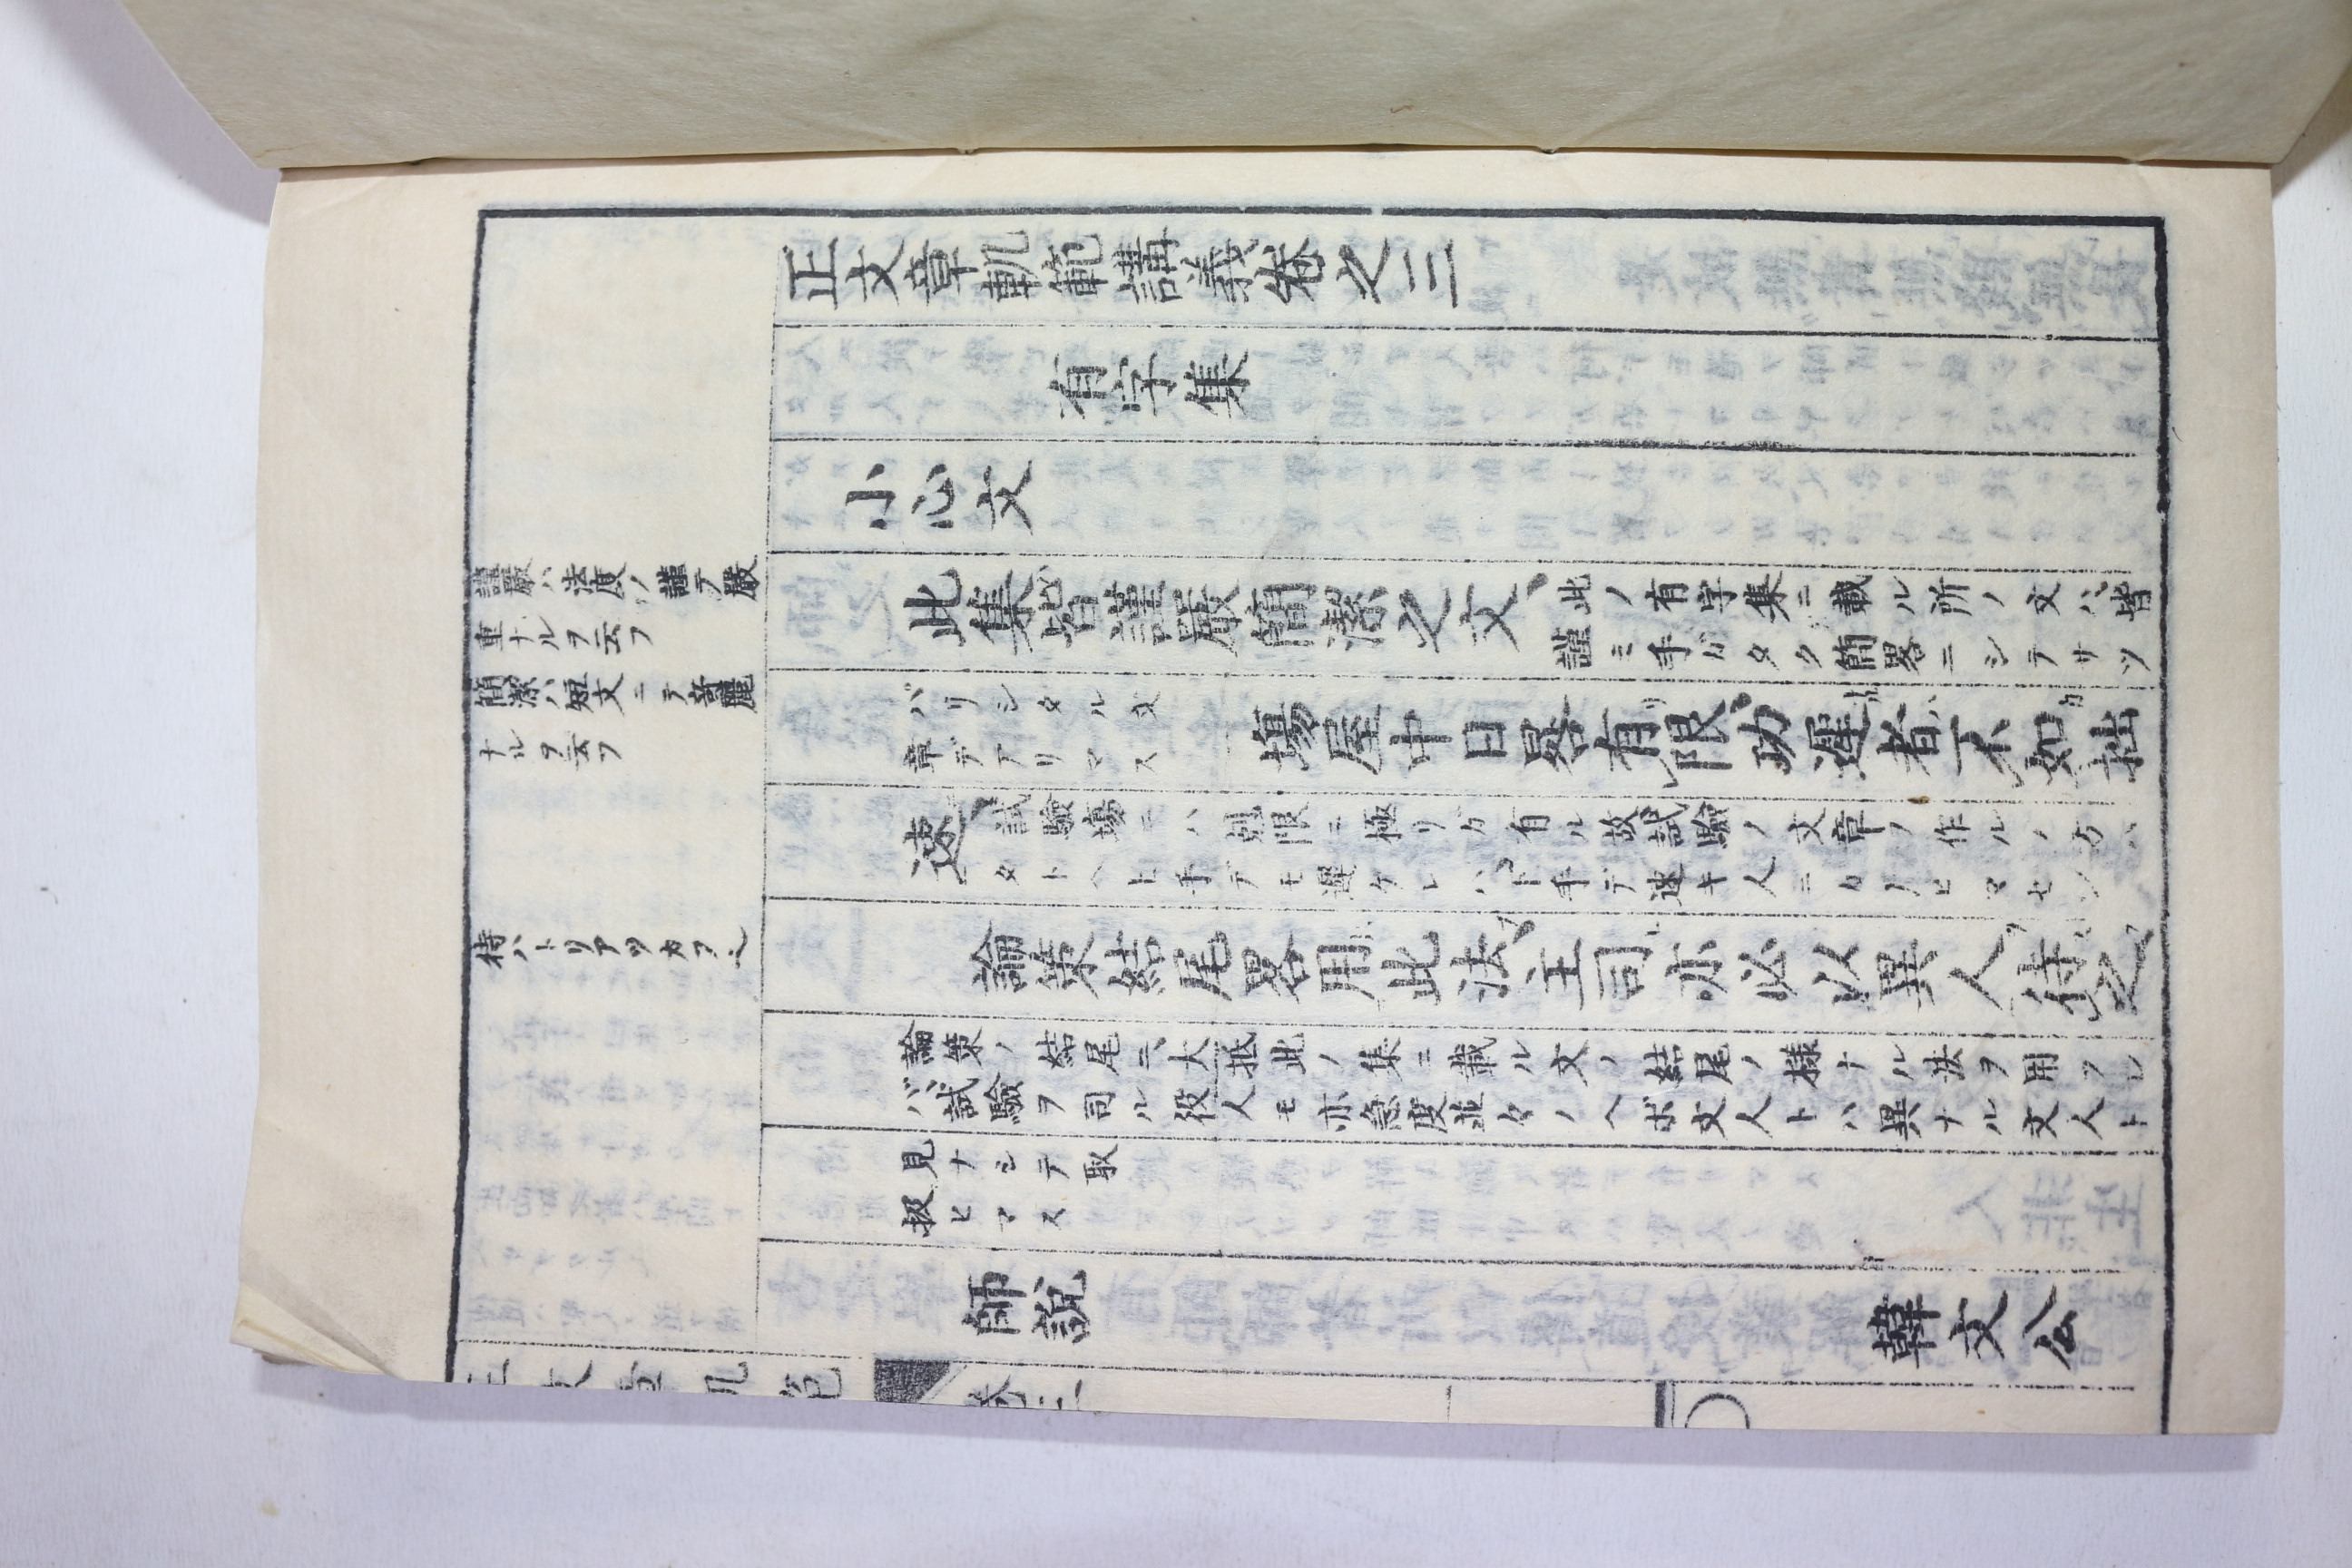 正文章軌範講義卷之三
有字集
小心文
此集皆謹嚴簡潔之文
此ノ有字集ニ載ル所ノ文ハ皆
謹ミ手ガタク簡畧ニシテサツ
パリシタル文
章デアリマス
場屋中日晷有限功遲者不如拙
速
試驗場ニハ刻限ニ極リガ有ル故試驗ノ文章ノ作ルノ方ハ
タトヘ上手デモ遲ケレバ下手デ速キ人ニカノヒマセン
論策結尾畧用此法主司亦必以異人待之
論策ノ結尾ニ大抵此ノ集ニ載ル文ノ結尾ノ樣ナル法ヲ用フレ
バ試驗ヲ司ル役人モ亦急度並々ノヘボ文人トハ異ナル文人ト
見ナシテ取
扱ヒマス
師說
韓文公
謹嚴ハ法度ノ謹テ嚴
重ナルヲ云フ
簡潔ハ短文ニテ奇麗
ナルヲ云フ
待ハトリアツカフ也
正文章軌範
卷三